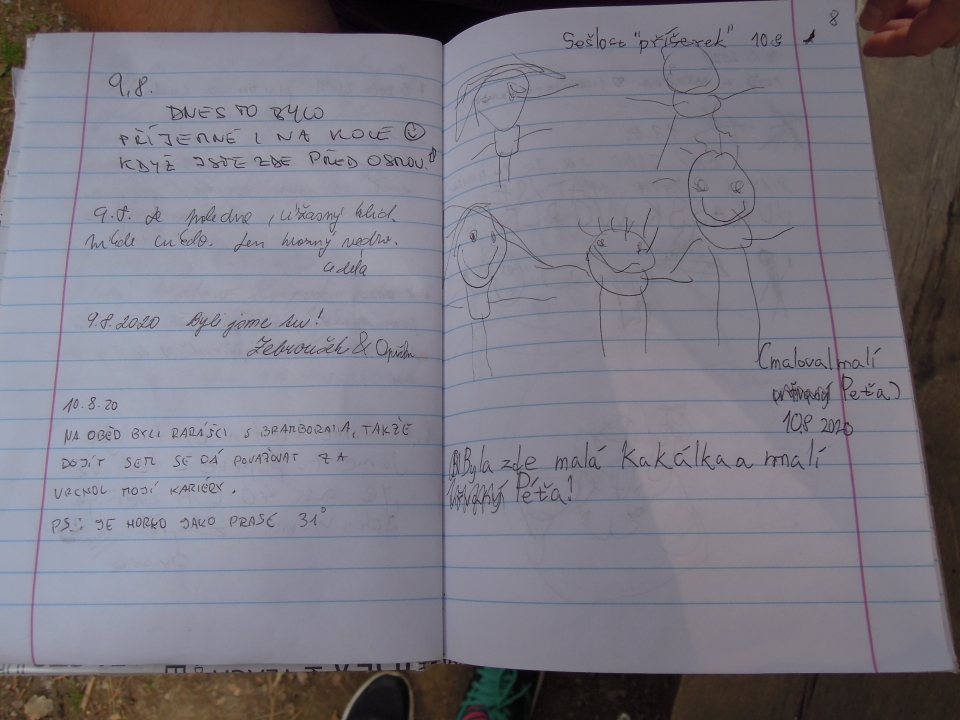 9.8.
DNES TO BYLO
PŘÍJEMNÉ I NA KOLE
KDYŽ JSTE ZDE PŘED OSMOU!
9.8. Je poledne, úžasný klid,
nikde nikdo. Jen hrozný vedro.
9.8.2020 Byli jsme tu!
Žebroušek &
10.8.20
NA OBĚD BYLI KARÁSCI S BRAMBORAMA, TAKŽE
DOJÍT SEM SE DÁ POVAŽOVAT ZA
VRCHOL MOJÍ KARIÉRY.
PS: JE HORKO JAKO PRASE 31°
8
Sešlost "příšerek" 10.8
(maloval malí
Peťa)
10.8 2020
Byla zde malá kakálka a malí
Péťa!